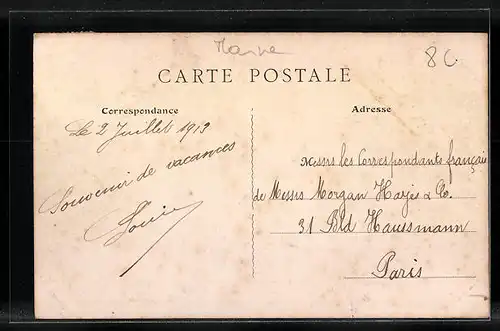 Marne
8C
CARTE POSTALE
Correspondance
Adresse
Le 2 Juillet 1913
Souvenir de vacances
Louis
Messrs les Correspondants français
de Messrs Morgan Harjes & Co.
31 Bld Haussmann
Paris